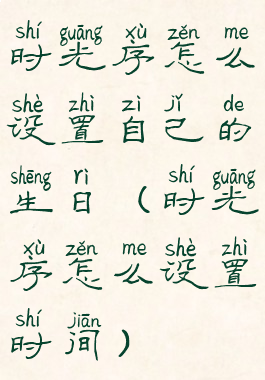 shí guāng xù zěn me
时光序怎么
shè zhì zì jǐ de
设置自己的
shēng rì shí guāng
生日(时光
xù zěn me shè zhì
序怎么设置
shí jiān
时间)